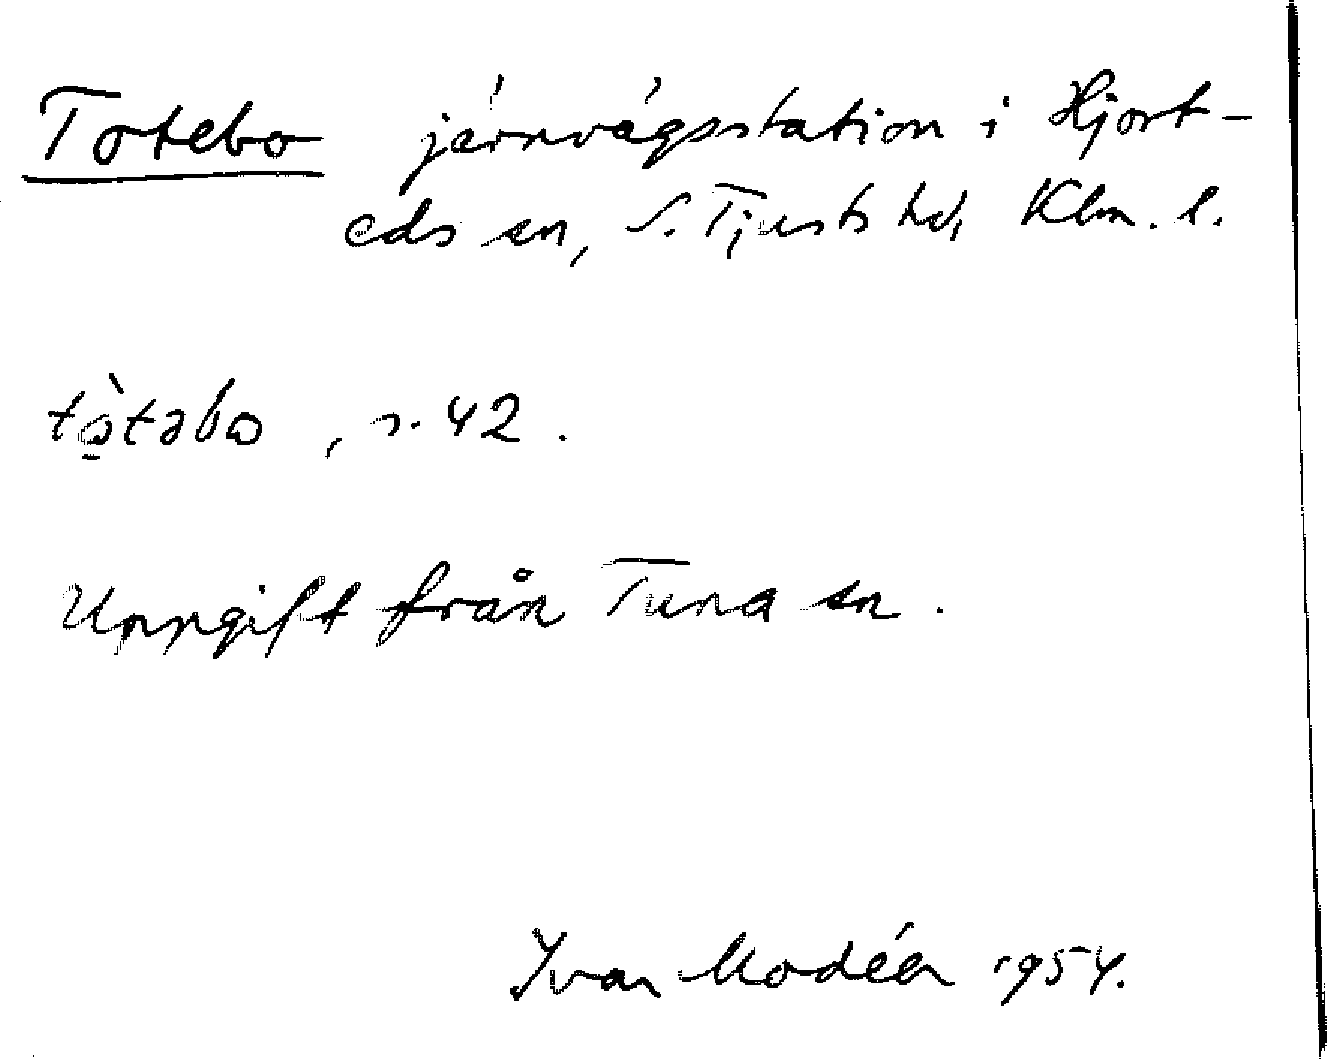 Totebo järnvägsstation i Hjort-
eds sn, S. Tjusts hd, Klm. l.
tòtəbo , s. 42 .
Uppgift från Tuna sn .
Ivar Modéer 1954.